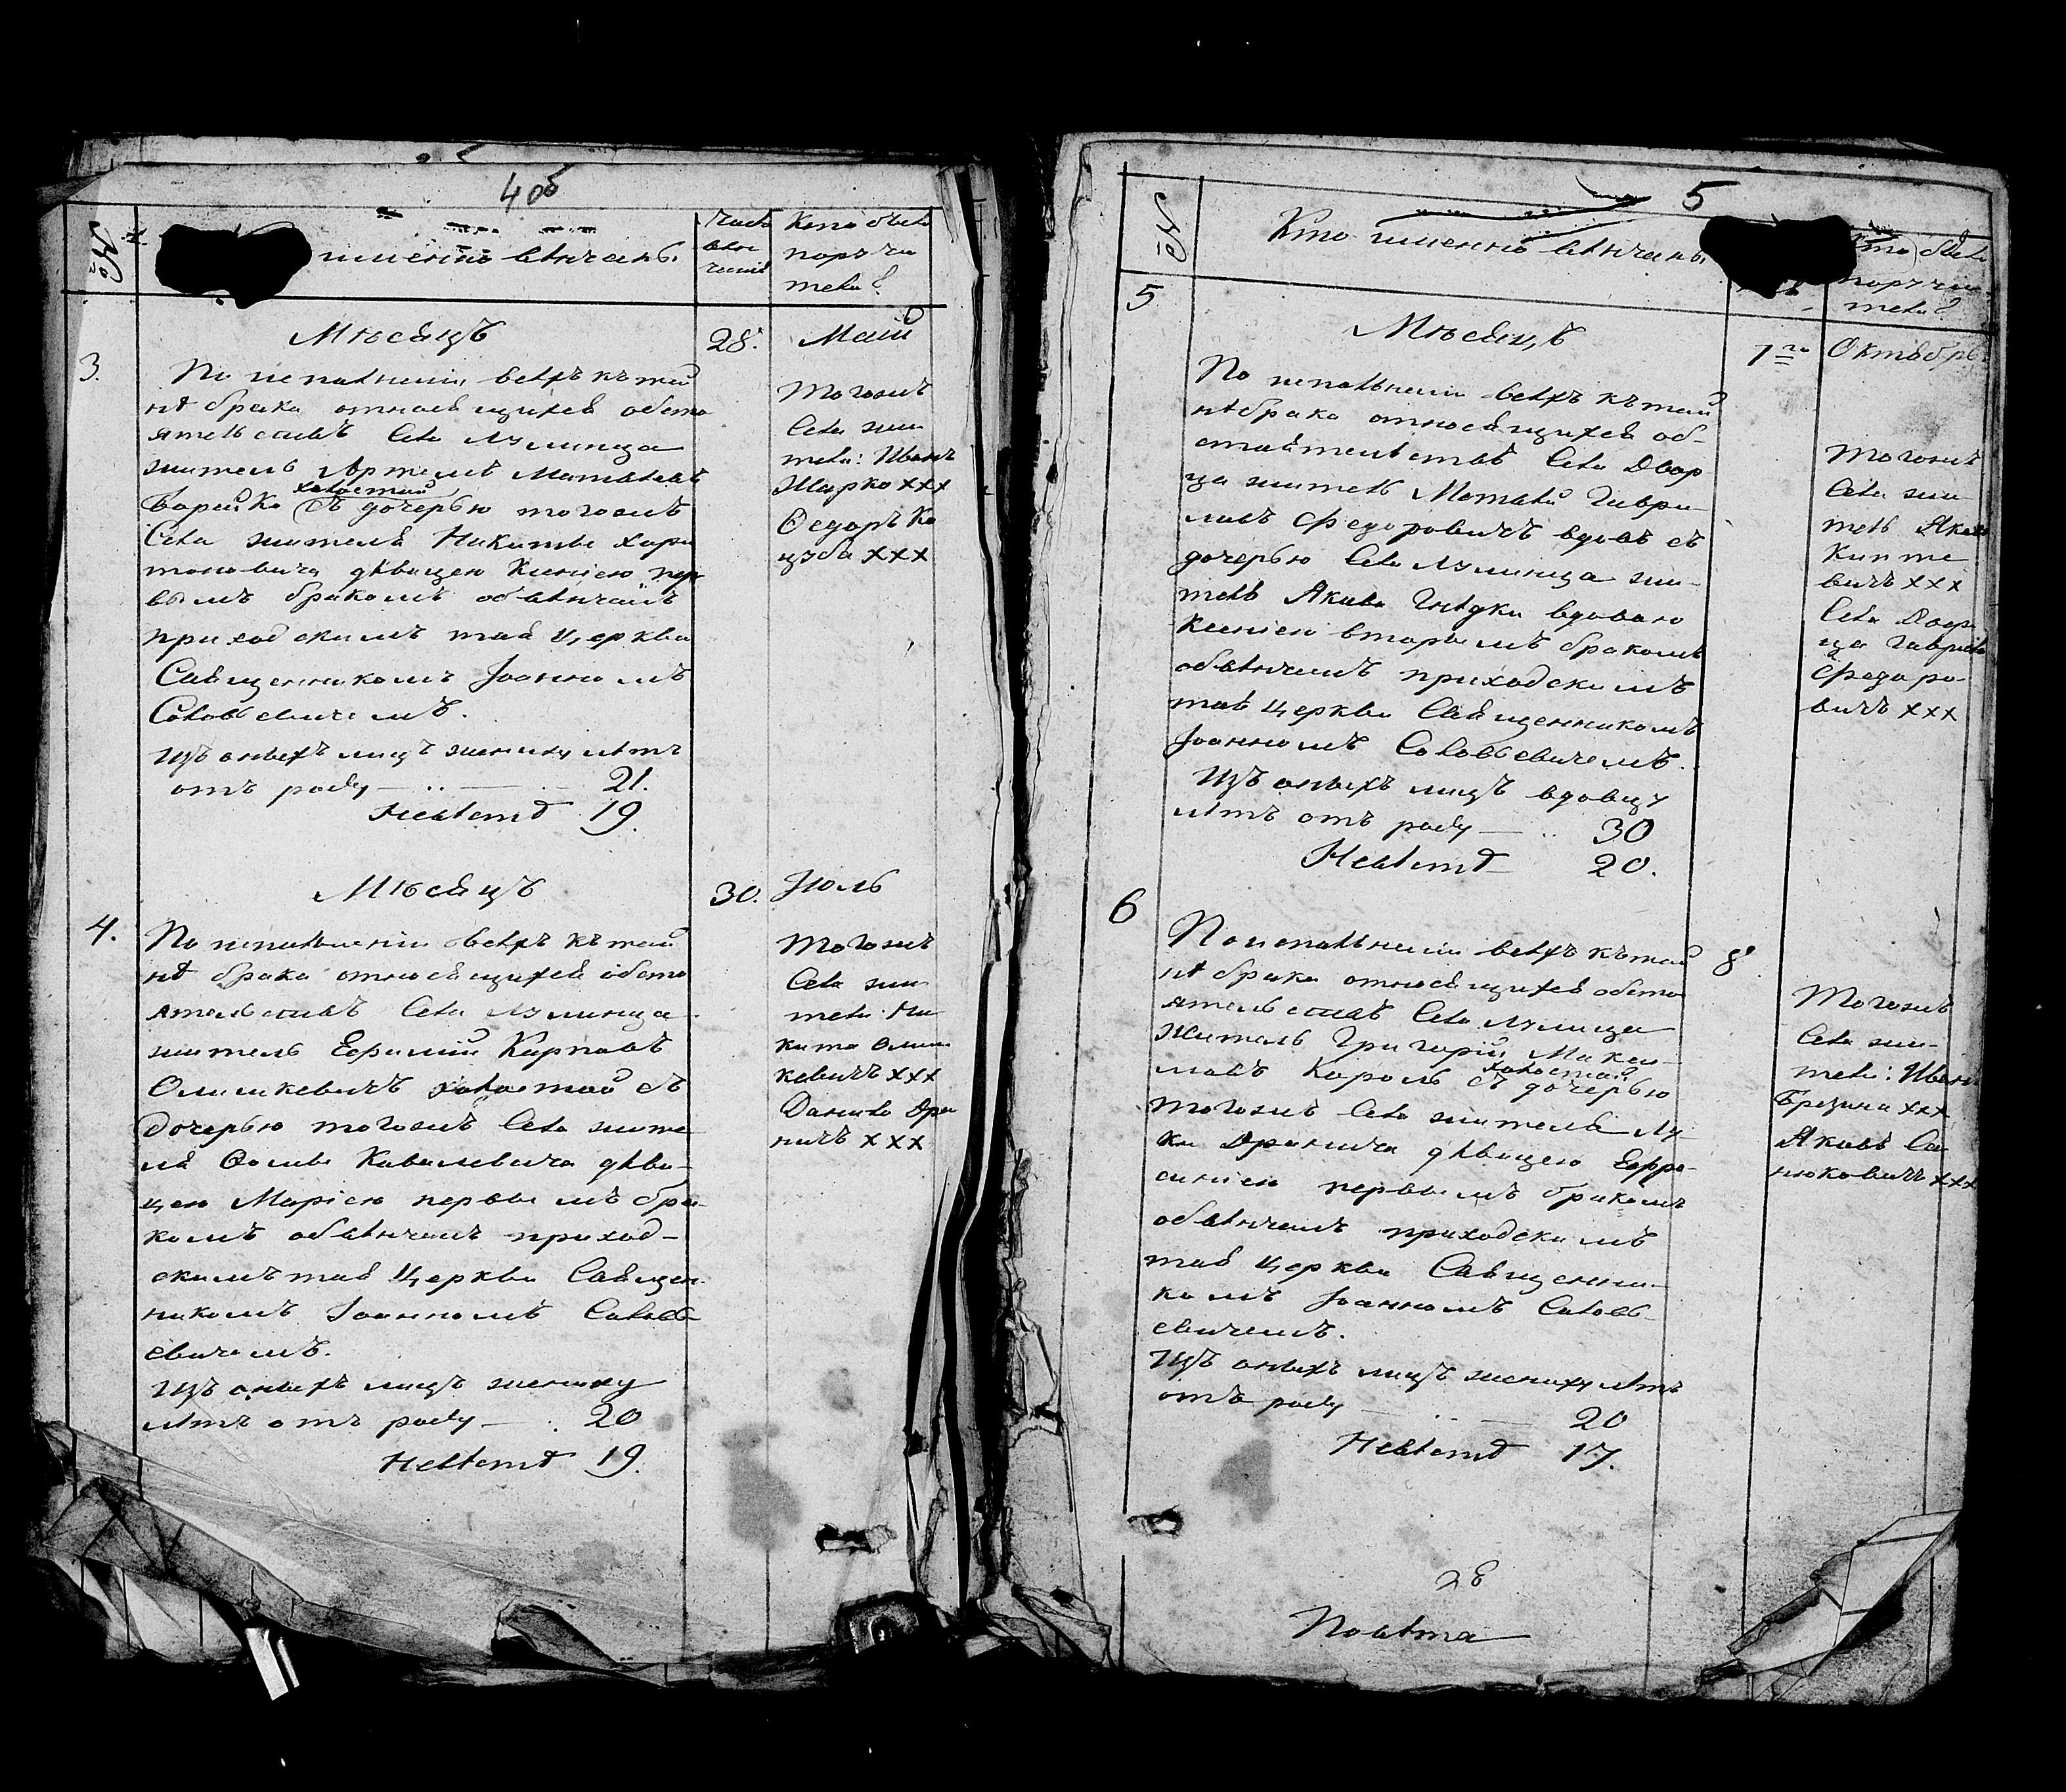 4 об
№
именно венчаны.
Число
вен
чанія
Кто были
поручи
тели?
Мѣсяцъ
28.
Маій
3.
По исполненіи всѣхъ къ тай
нѣ брака относящихся обсто
ятельствъ Села Лулинца
житель Артемъ Матвѣевъ
холостый
Борейко съ дочерью тогожъ
Села жителя Никиты Хари
тоновича дѣвицею Ксеніею пер
вымъ бракомъ обвѣнчанъ
приходскимъ тоя Церкви
Священникомъ Іоанномъ
Соловьевичемъ.
Изъ оныхъ лицъ жениху лѣтъ
отъ роду — 21.
Невѣстѣ 19.
Тогожъ
Села жи
тели: Иванъ
Жарко ххх
Ѳедоръ Ко
цуба ххх
Мѣсяцъ
30.
Іюль
4.
По исполненіи всѣхъ къ тай
нѣ брака относящихся обсто
ятельствъ Села Лулинца
житель Ефимій Карповъ
Олишкевичъ холостый съ
дочерью тогожъ Села жите
ля Ѳомы Ковалевича дѣви-
цею Маріею первымъ бра-
комъ обвѣнчанъ приход-
скимъ тоя Церкви Священ-
никомъ Іоанномъ Соловь-
евичемъ.
Изъ оныхъ лицъ жениху
лѣтъ отъ роду — 20
Невѣстѣ 19.
Тогожъ
Села жи
тели: Ни
кита Олиш
кевичъ ххх
Данило Дра
ничъ ххх
5
№
Кто именно венчаны
Кто были
поручи
тели?
5
Мѣсяцъ
1го
Октябрь
По исполненіи всѣхъ къ тай
нѣ брака относящихся об-
стоятельствъ Села Двор
ца житель Матвѣй Гаври-
ловъ Федоровичъ вдовъ съ
дочерью Села Лулинца жи-
теля Якова Гнѣдки вдовою
Ксеніею вторымъ бракомъ
обвѣнчанъ приходскимъ
тоя Церкви Священникомъ
Іоанномъ Соловьевичемъ.
Изъ оныхъ лицъ вдовцу
лѣтъ отъ роду — 30
Невѣстѣ 20.
Тогожъ
Села жи-
тель Яковъ
вичъ ххх
Села Двор
ца Гаврило
Федоро-
вичъ ххх
6
8
По исполненіи всѣхъ къ тай
нѣ брака относящихся обсто
ятельствъ Села Лулинца
Житель Григорій Макси-
холостый
мовъ Король съ дочерью
тогожъ Села жителя Лу-
ки Дранича дѣвицею Евфро-
синіею первымъ бракомъ
обвѣнчанъ приходскимъ
тоя Церкви Священни-
комъ Іоанномъ Соловь-
евичемъ.
Изъ оныхъ лицъ жениху лѣтъ
отъ роду — 20
Невѣстѣ 17.
Тогожъ
Села жи-
тели: Иванъ
Брезина ххх
Яковъ Са
нюковичъ ххх